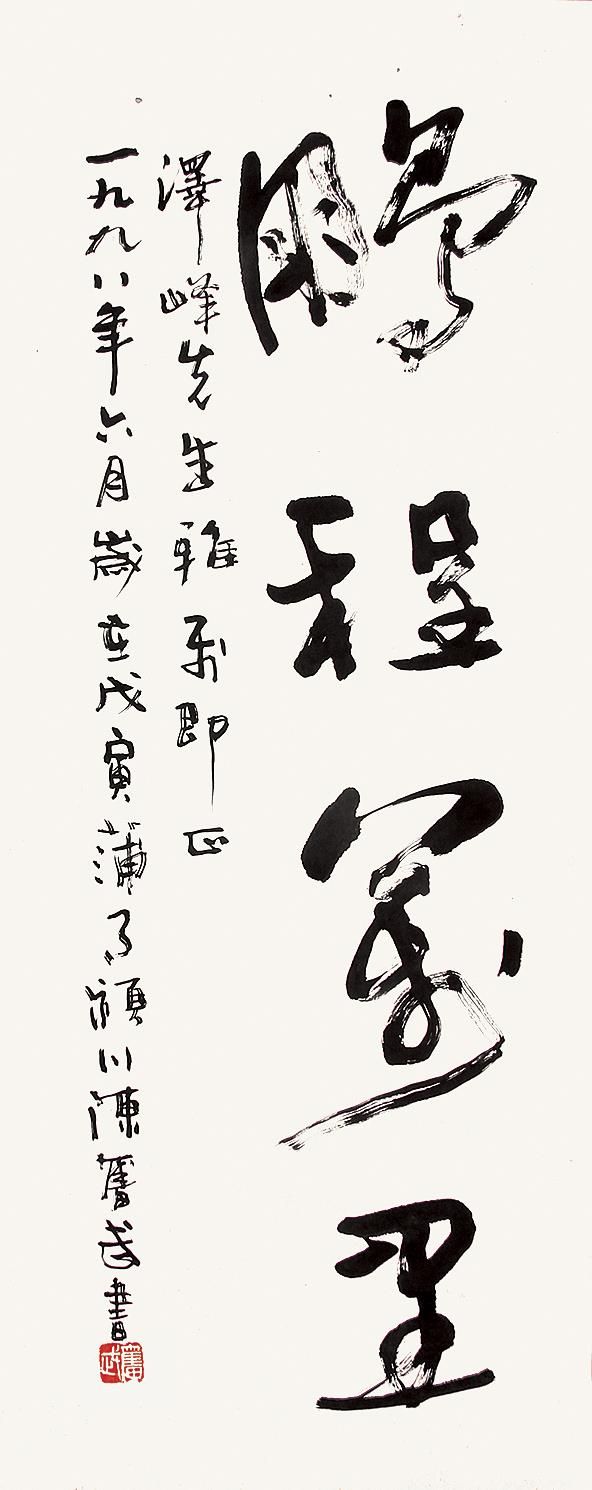 鵬程萬里
澤峰先生雅屬即正
一九九八年六月歲在戊寅蒲月穎川陳奮武書
奮武